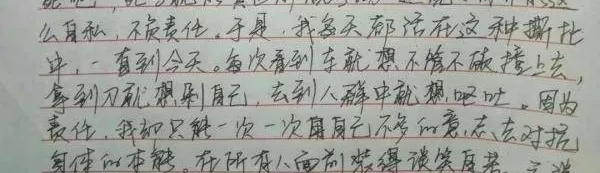 么自私,不负责任。于是,我每天都活在这种撕扯
中,一直到今天。每次看到车就想不管不顾撞上去,
拿到刀就想刺自己,去到人群中就想呕吐。因为
责任,我却只能一次一次用自己不多的意志去对抗
身体的本能。在所有人面前装得谈笑自若。